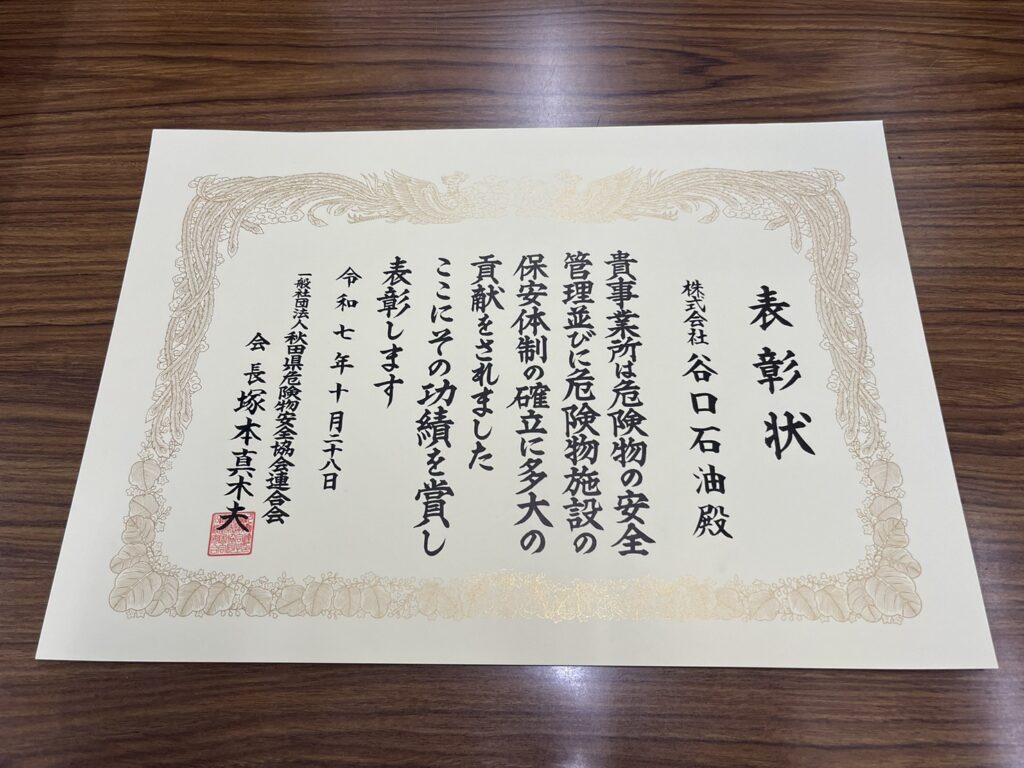 表彰状
株式会社 谷口石油殿
貴事業所は危険物の安全
管理並びに危険物施設の
保安体制の確立に多大の
貢献をされました
ここにその功績を賞し
表彰します
令和七年十月二十八日
一般社団法人 秋田県危険物安全協会連合会
会長 塚本真木夫